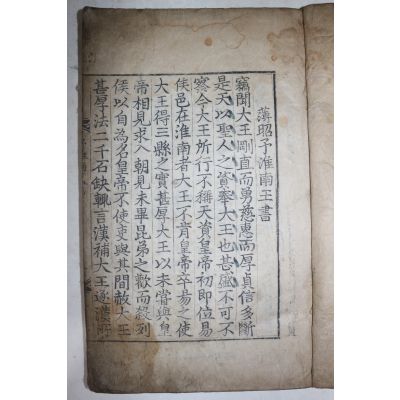 薄昭予淮南王書
竊聞大王剛直而勇慈惠而厚貞信多斷
是天以聖人之資奉大王也甚盛不可不
察今大王所行不稱天資皇帝初即位易
侯邑在淮南者大王不肯皇帝卒易之使
大王得三縣之實甚厚大王以未嘗與皇
帝相見求入朝見未畢昆弟之歡而殺列
侯以自為名皇帝不使吏與其間赦大王
甚厚法二千石缺輒言漢補大王逐漢所